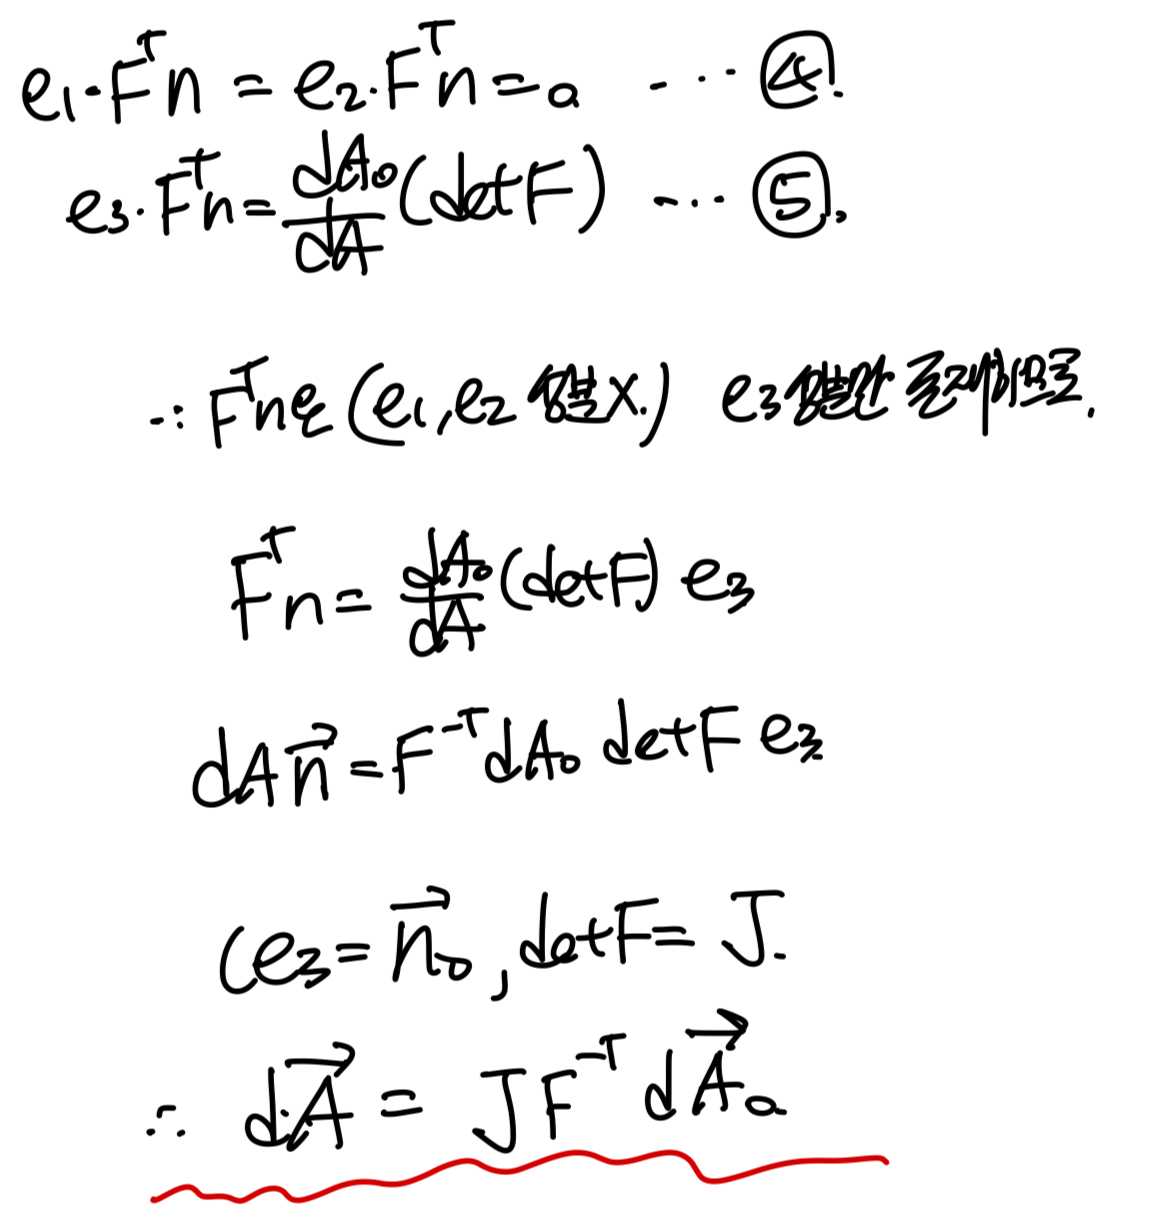 e₁·Fᵀn = e₂·Fᵀn = 0 ··· ④.
e₃·Fᵀn = dA₀/dA (detF) ··· ⑤.
∴ Fᵀn은 (e₁, e₂ 성분X.) e₃성분만 존재하므로.
Fᵀn = dA₀/dA (detF) e₃
dA n⃗ = F⁻ᵀ dA₀ detF e₃
(e₃ = n⃗₀, detF = J.
∴ dA⃗ = JF⁻ᵀ dA⃗₀